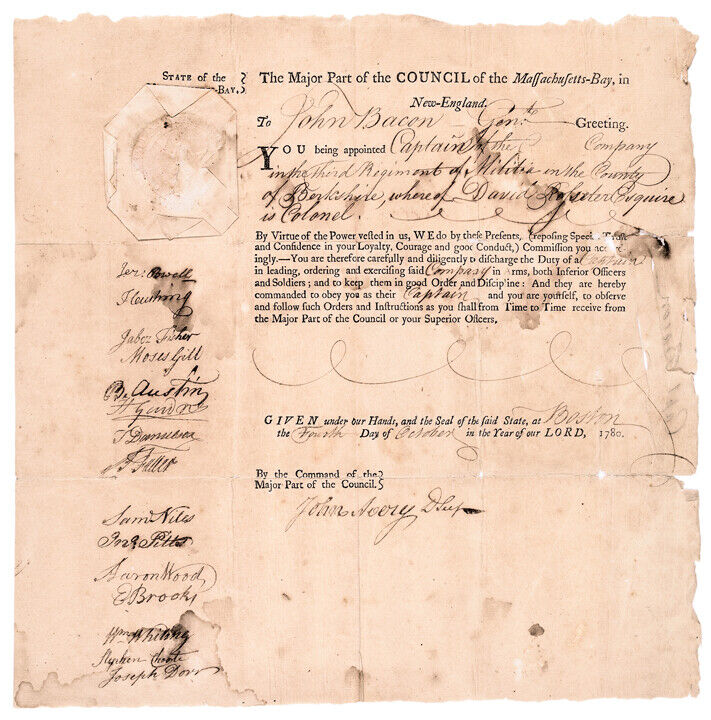 STATE of the
-BAY,
The Major Part of the COUNCIL of the Massachusetts-Bay, in
New-England.
To John Bacon Gent. Greeting.
YOU being appointed Captain of the Company
in the Third Regiment of Militia in the County
of Berkshire, whereof David Rosseter Esquire
is Colonel.
By Virtue of the Power vested in us, WE do by these Presents, (reposing Special Trust
and Confidence in your Loyalty, Courage and good Conduct,) Commission you accor-
ingly.—You are therefore carefully and diligently to discharge the Duty of a Captain
in leading, ordering and exercising said Company in Arms, both Inferior Officers
and Soldiers; and to keep them in good Order and Discipline: And they are hereby
commanded to obey you as their Captain and you are yourself, to observe
and follow such Orders and Instructions as you shall from Time to Time receive from
the Major Part of the Council or your Superior Officers.
GIVEN under our Hands, and the Seal of the said State, at Boston
the Fourth Day of October in the Year of our LORD, 1780.
By the Command of the
Major Part of the Council.
John Avery D Secy
Jer: Powell
T Cushing
Jabez Fisher
Moses Gill
B. Austin
H Gardner
T Danielson
Sam Niles
Jno. Pitts
Aaron Wood
E Brooks
Wm Whiting
Stephen Choate
Joseph Dorr